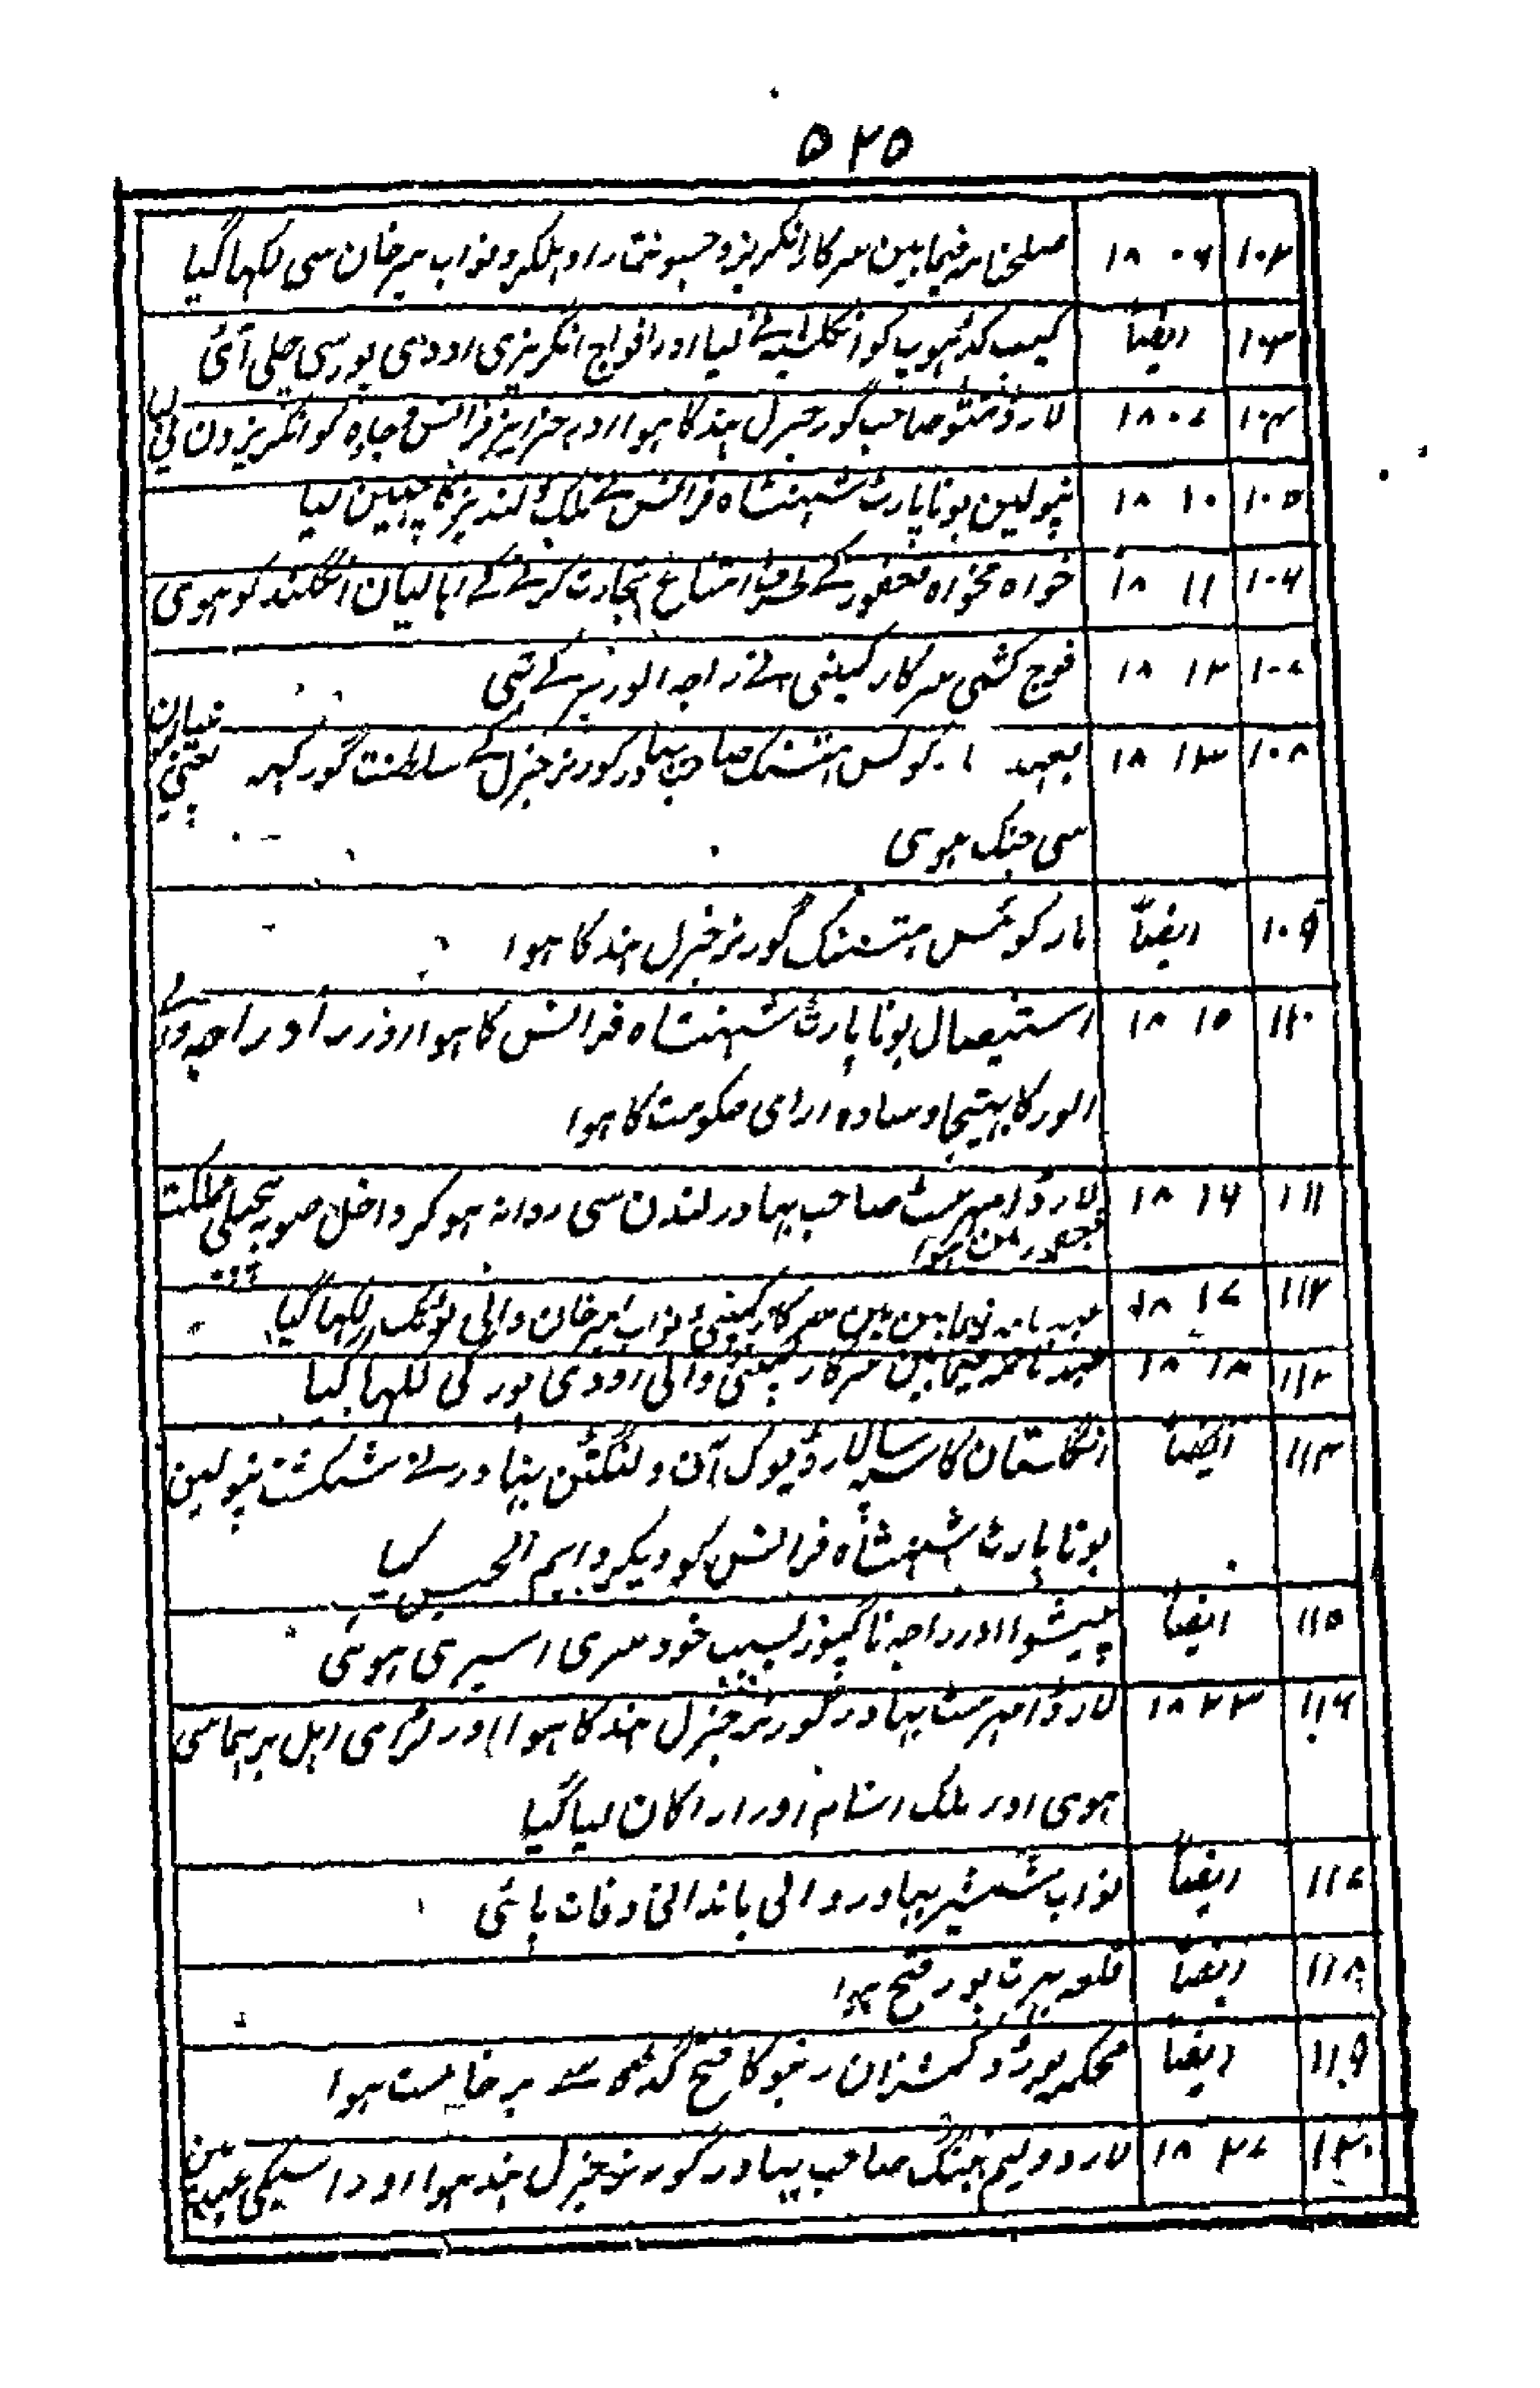 ۵۲۵
۱۰۲ ۱۸۰۶ صلحنامہ فیمابین سرکار انگریز و جسونت راو ہلکر و نواب میرخان سی لکہا گیا
۱۰۳ ایضاً کیپ کدہوپ کو انگلسیہ نے لیا اور افواج انگریزی اودی پور سی چلی آئی
۱۰۴ ۱۸۰۷ لارڈ منٹو صاحب گورنر جنرل ہند کا ہوا اور جزایر فرانس و جاوہ کو انگریزون نی لیا
۱۰۵ ۱۸۱۰ نپولین بوناپارٹ شہنشاہ فرانس نے ملک ولندیز کا چہین لیا
۱۰۶ ۱۸۱۱ خواہ مخواہ فغفور کے طرف امتناع تجارت کرنے کے اہالیان انگلنڈ کو ہوی
۱۰۷ ۱۸۱۲ فوج کشی سرکار کمپنی نے راجہ الور پر کے تہی
۱۰۸ ۱۸۱۳ بعہد مارکوئس ہسٹنگ صاحب بہادر گورنر جنرل کے سلطنت گورکہہ یعنی نیپالیان
سی جنگ ہوی
۱۰۹ ایضاً مارکوئس ہسٹنگ گورنر جنرل ہند کا ہوا
۱۱۰ ۱۸۱۵ استیصال بوناپارٹ شہنشاہ فرانس کا ہوا روز راو راجہ والی
الور کا بہتیجا وسادہ ارای حکومت کا ہوا
۱۱۱ ۱۸۱۶ لارڈ امہرسٹ صاحب بہادر لندن سی روانہ ہو کر داخل صوبہ مملکت
فغفور مین ہوا
۱۱۲ ۱۸۱۷ عہدنامہ فیمابین سرکار کمپنی و نواب میرخان والی ٹونک لکہا گیا
۱۱۳ ۱۸۱۸ عہدنامہ فیمابین سرکار کمپنی و والی اودی پور کی لکہا گیا
۱۱۴ ایضاً انگلستان کا سپہ سالار ڈیوک آف ولنگٹن بہادر نے شکست نپولین
بوناپارٹ شہنشاہ فرانس کو دیکر دایم الحبس کیا
۱۱۵ ایضاً پیشوا اور راجہ ناگپور بسبب خودسری اسیری ہوئی
۱۱۶ ۱۸۲۳ لارڈ امہرسٹ بہادر گورنر جنرل ہند کا ہوا اور لڑای اہل برہما سی
ہوی اور ملک اسام اور اراکان لیا گیا
۱۱۷ ایضاً نواب شمشیر بہادر والی باندا نی وفات پائی
۱۱۸ ایضاً قلعہ بہرت پور فتح ہوا
۱۱۹ ایضاً محکمہ بورڈ و کمشنران رنبو کا فتح گڈہ سے برخاست ہوا
۱۲۰ ۱۸۲۷ لارڈ ولیم بنٹنگ صاحب بہادر گورنر جنرل ہند ہوا اور اسیکی عہد مین